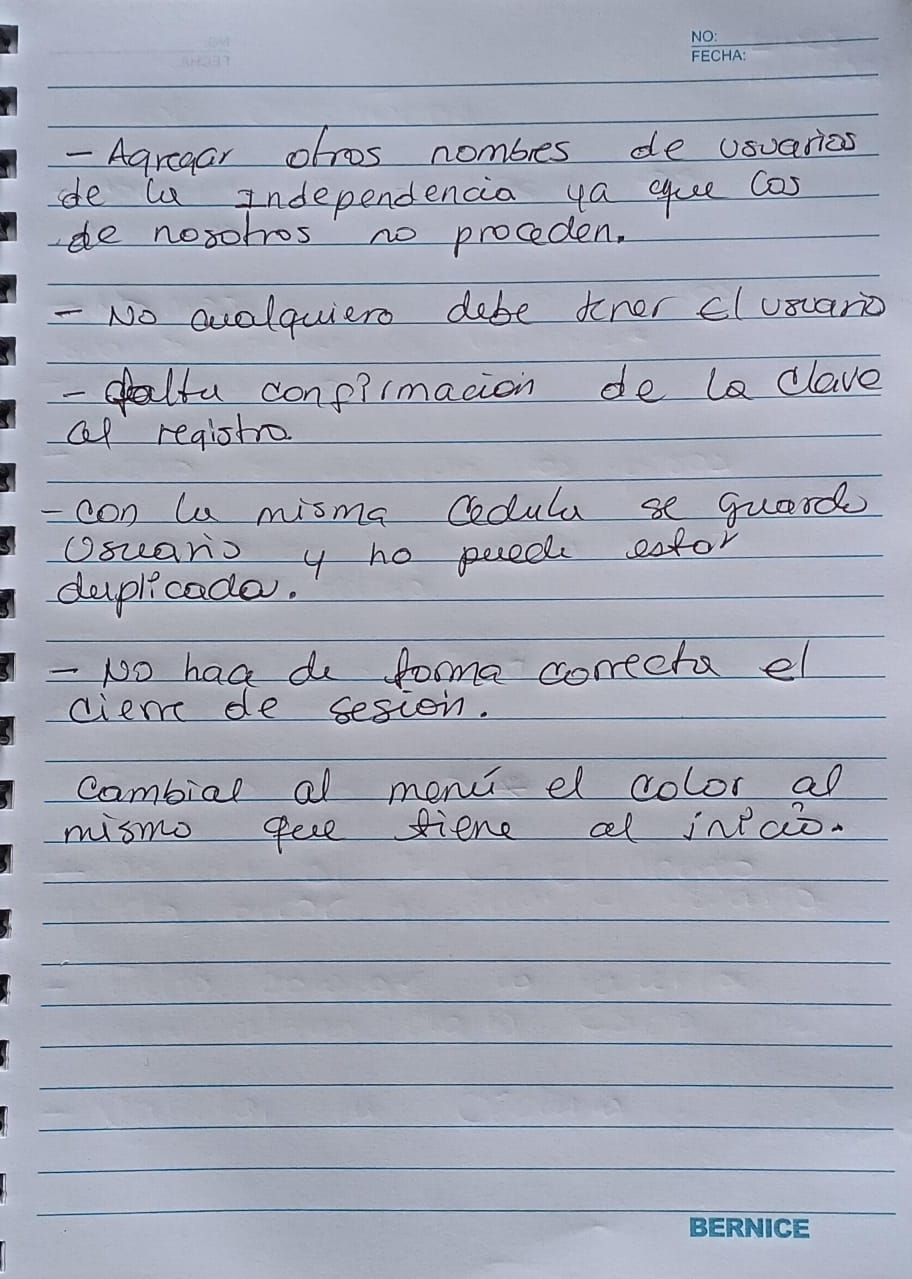 NO:
FECHA:
- Agregar otros nombres de usuarios
de la Independencia ya que los
de nosotros no proceden.
- No cualquiera debe tener el usuario
- falta confirmación de la clave
al registro
- con la misma cedula se guardo
usuario y no puede estar
duplicada.
- No hace de forma correcta el
cierre de sesión.
Cambial al menú el color al
mismo que tiene al inicio.
BERNICE